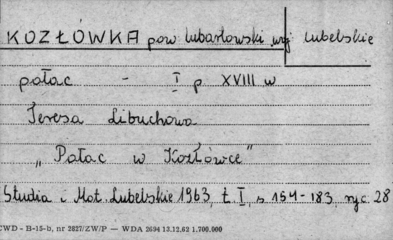 KOZŁÓWKA pow lubartowski woj lubelskie
pałac - I p XVIII w
Teresa Libuchowa
„Pałac w Kozłówce”
Studia i Mat. Lubelskie 1963 t. I, s 154-183, ryc. 28
CWD - B-15-b, nr 2827/ZW/P — WDA 2694 13.12.62 1.700.000